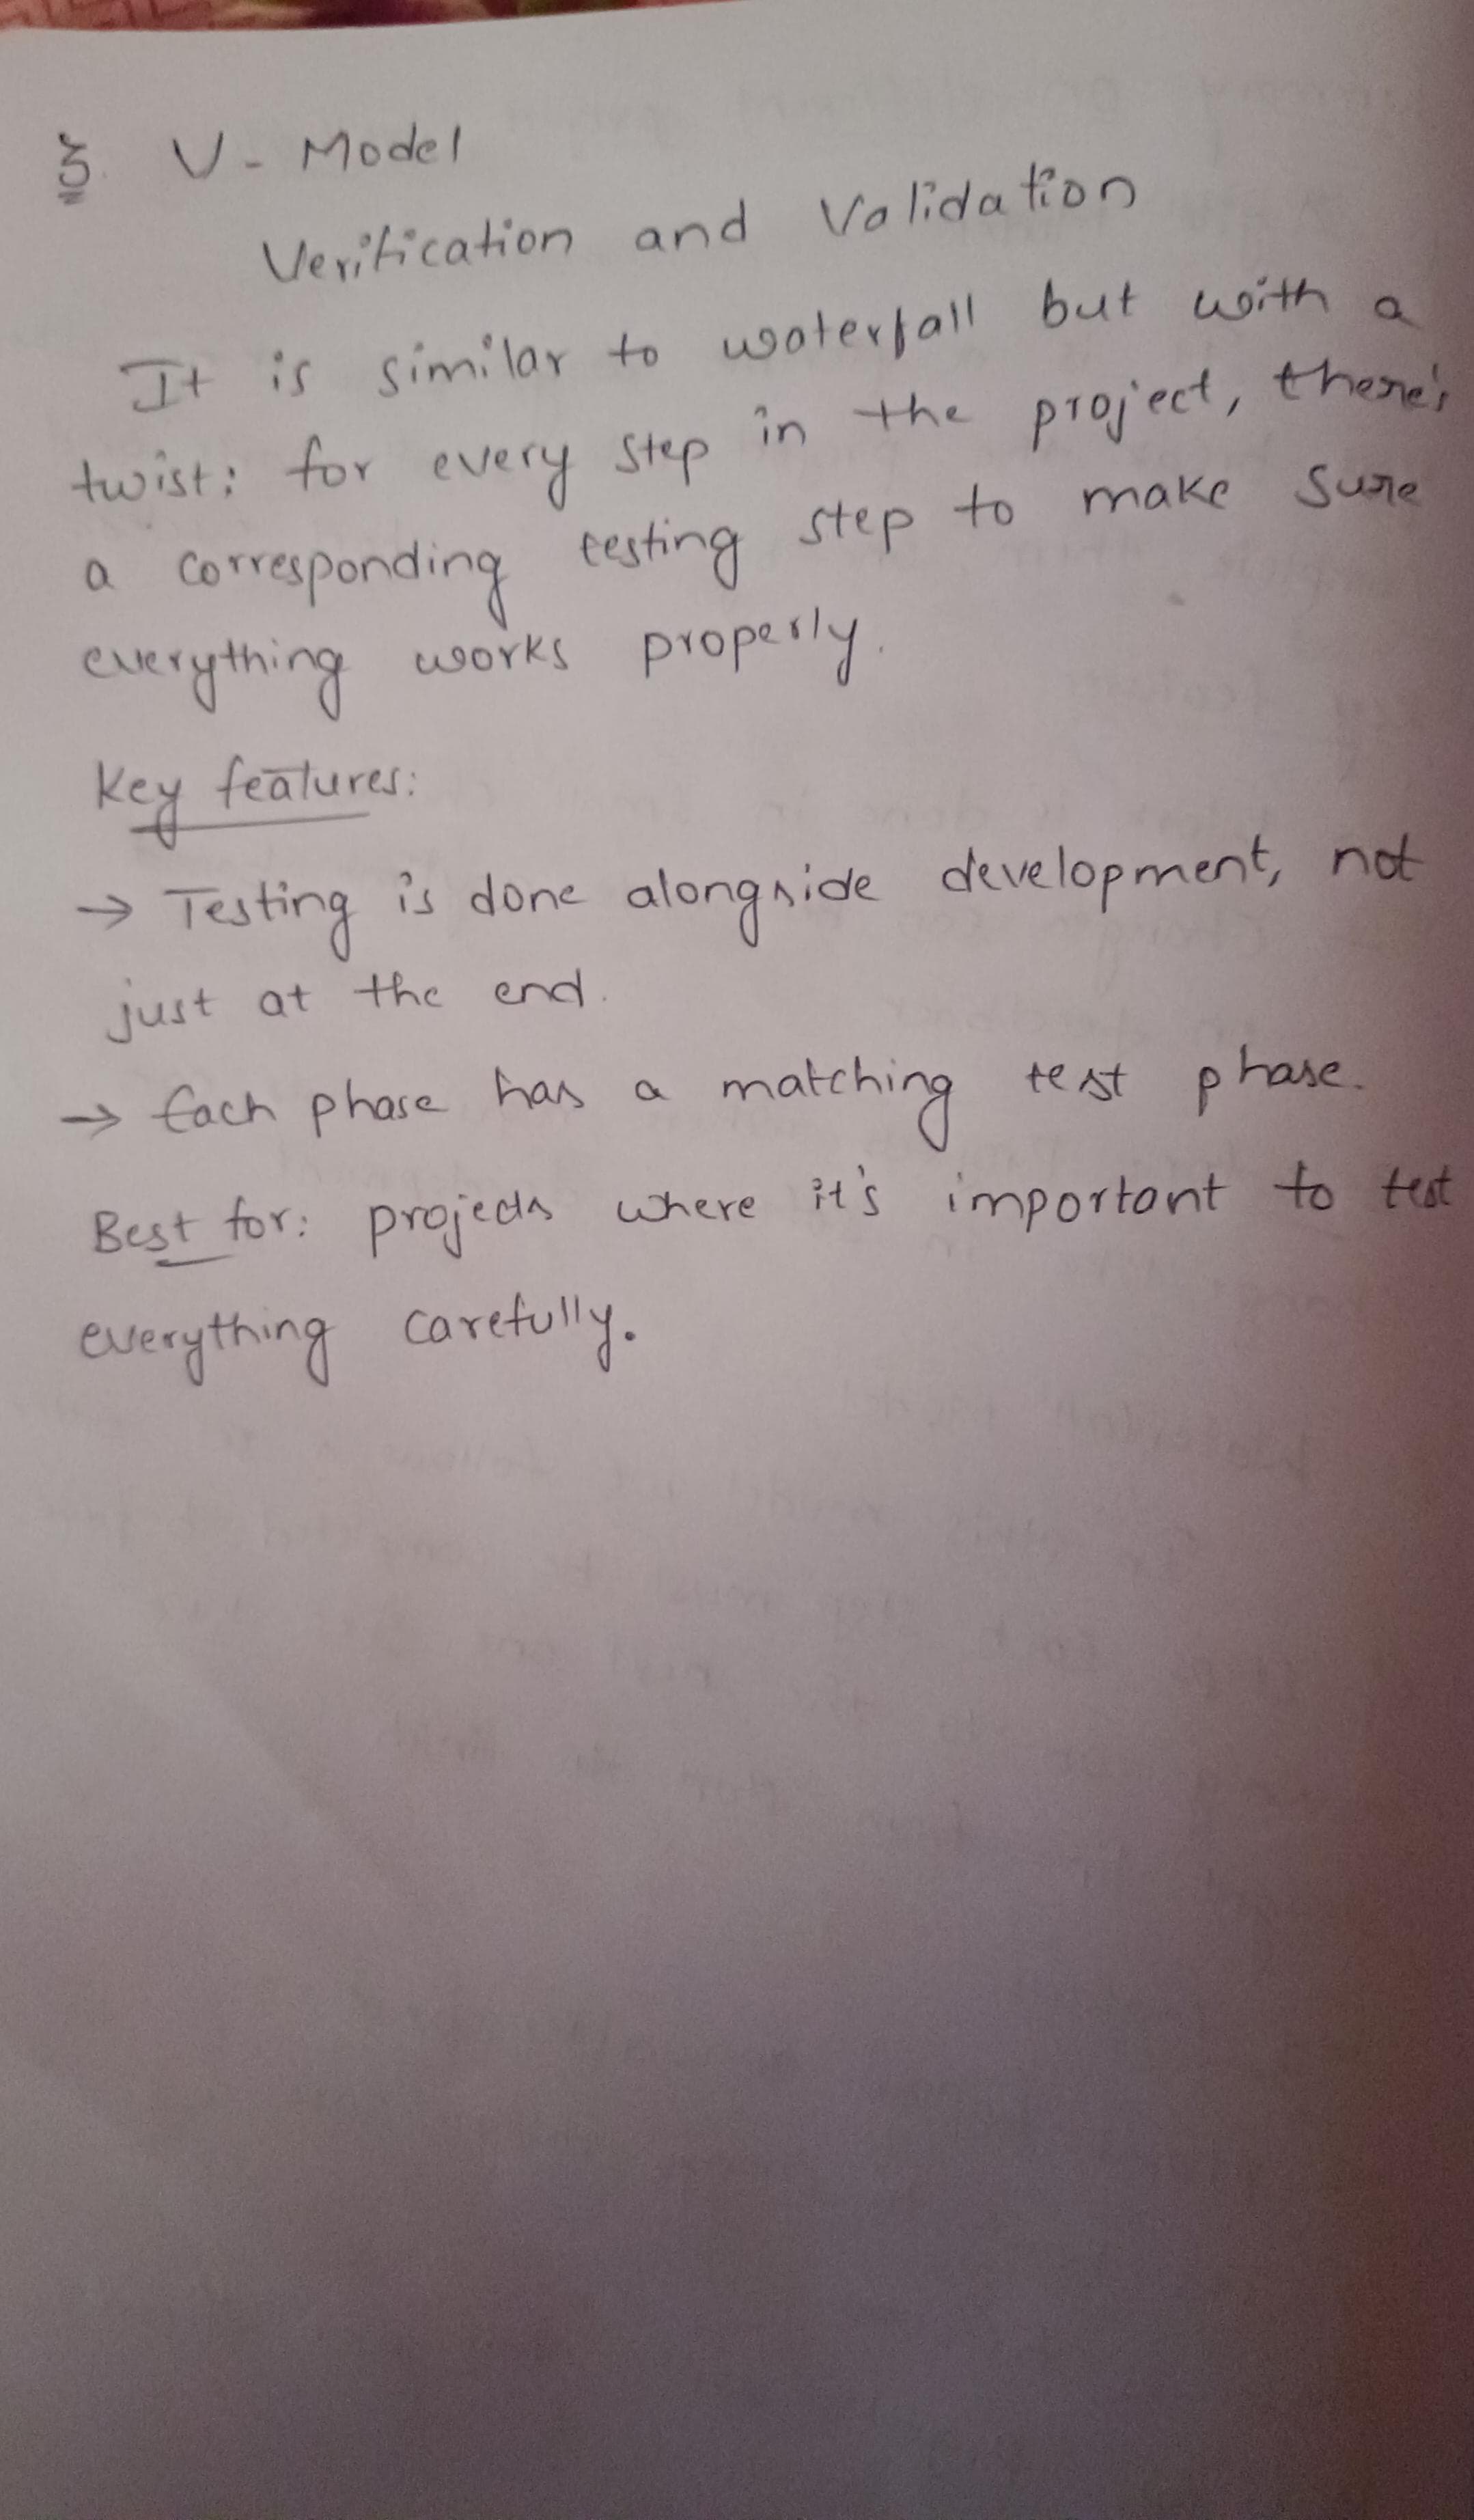 3. V - Model
Verification and Validation
It is similar to waterfall but with a
twist: for every step in the project, there's
a corresponding testing step to make sure
everything works properly.
Key features:
→ Testing is done alongside development, not
just at the end.
→ Each phase has a matching test phase.
Best for: projects where it's important to test
everything carefully.